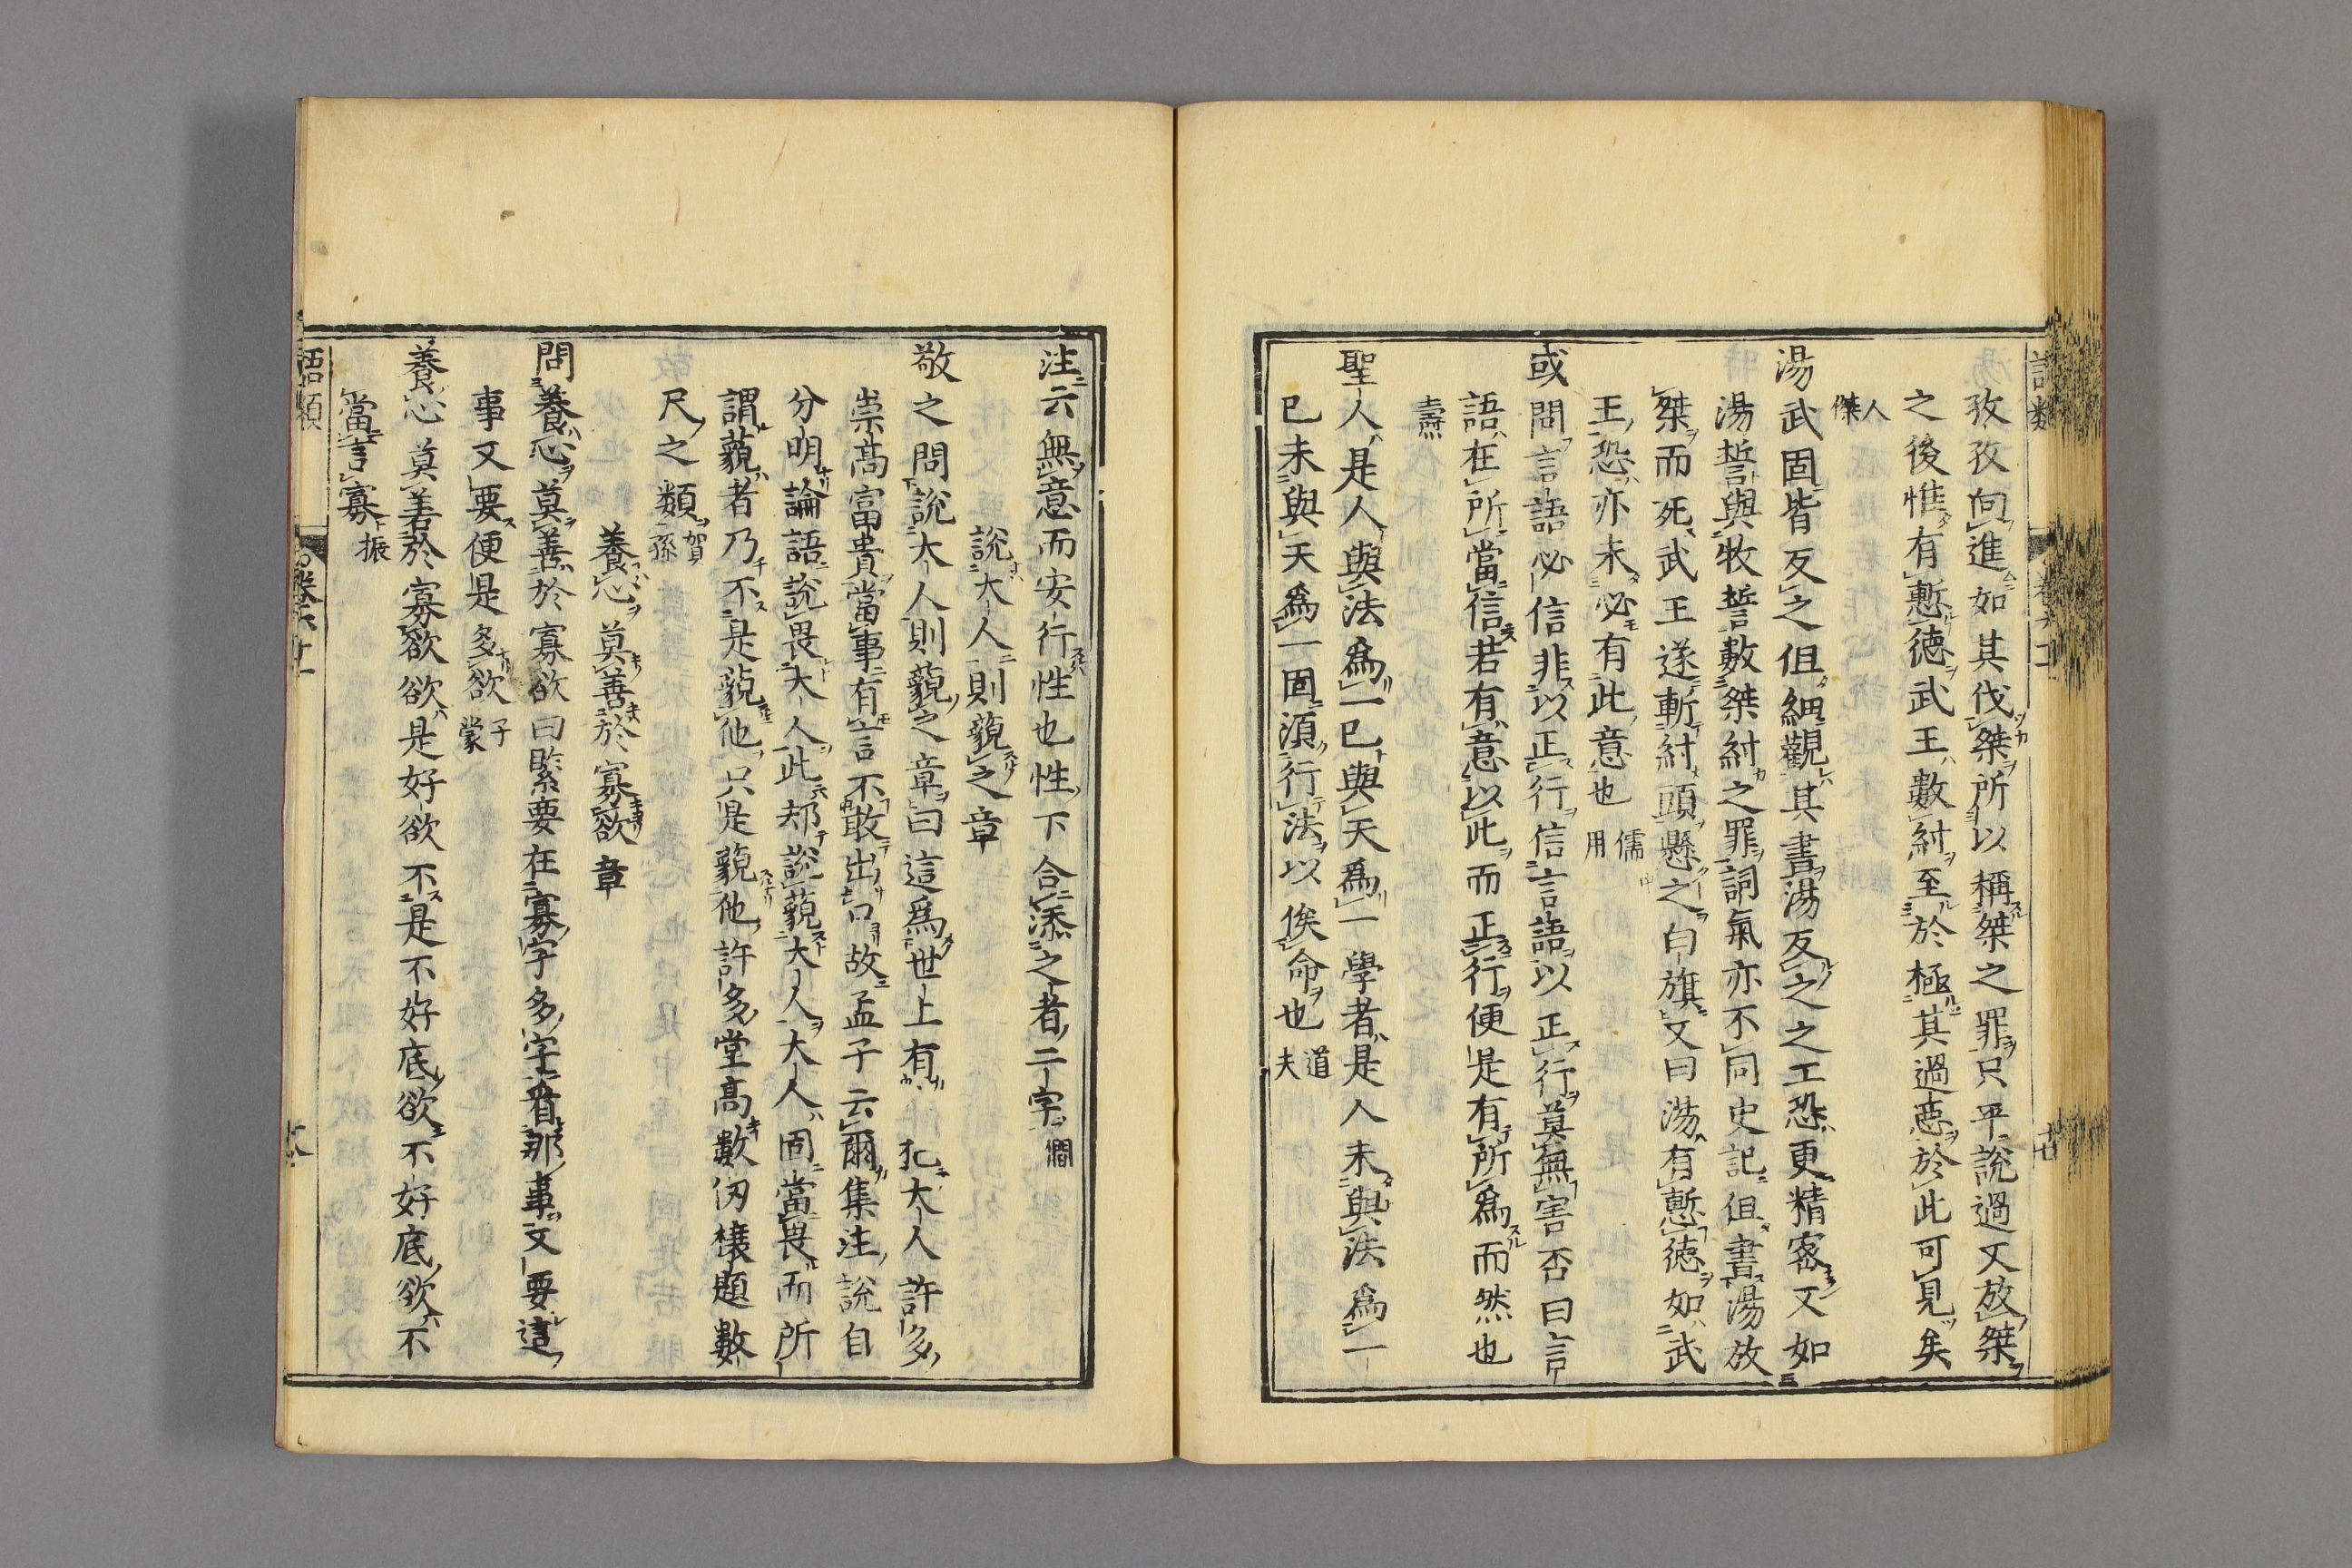 孜孜向進如其伐桀所以稱桀之罪只平說過又放桀
之後惟有慙德武王數紂至於極其過惡於此可見矣
人傑
湯武固皆反之但細觀其書湯反之之工恐更精密又如
湯誓與牧誓數桀紂之罪詞氣亦不同史記但書湯放
桀而死武王遂斬紂頭懸之白旗又曰湯有慙德如武
王恐亦未必有此意也儒用
或問言語必信非以正行信言語以正行莫無害否曰言
語在所當信若有意以此而正行便是有所爲而然也
壽
聖人是人與法爲一已與天爲一學者是人未與法爲一
已未與天爲一固須行法以俟命也道夫
注云無意而安行性也性下合添之者二字僩
說大人則藐之章
敬之問說大人則藐之章曰這爲世上有犯大人許多
崇高富貴當事有言不敢出口故孟子云爾集注說自
分明論語說畏大人此却說藐大人大人固當畏而所
謂藐者乃不是藐他只是藐他許多堂高數仞榱題數
尺之類賀孫
養心莫善於寡欲章
問養心莫善於寡欲曰緊要在寡字多字看那事又要這
事又要便是多欲子蒙
養心莫善於寡欲欲是好欲不是不好底欲不好底欲不
當言寡振
語類
卷六十一